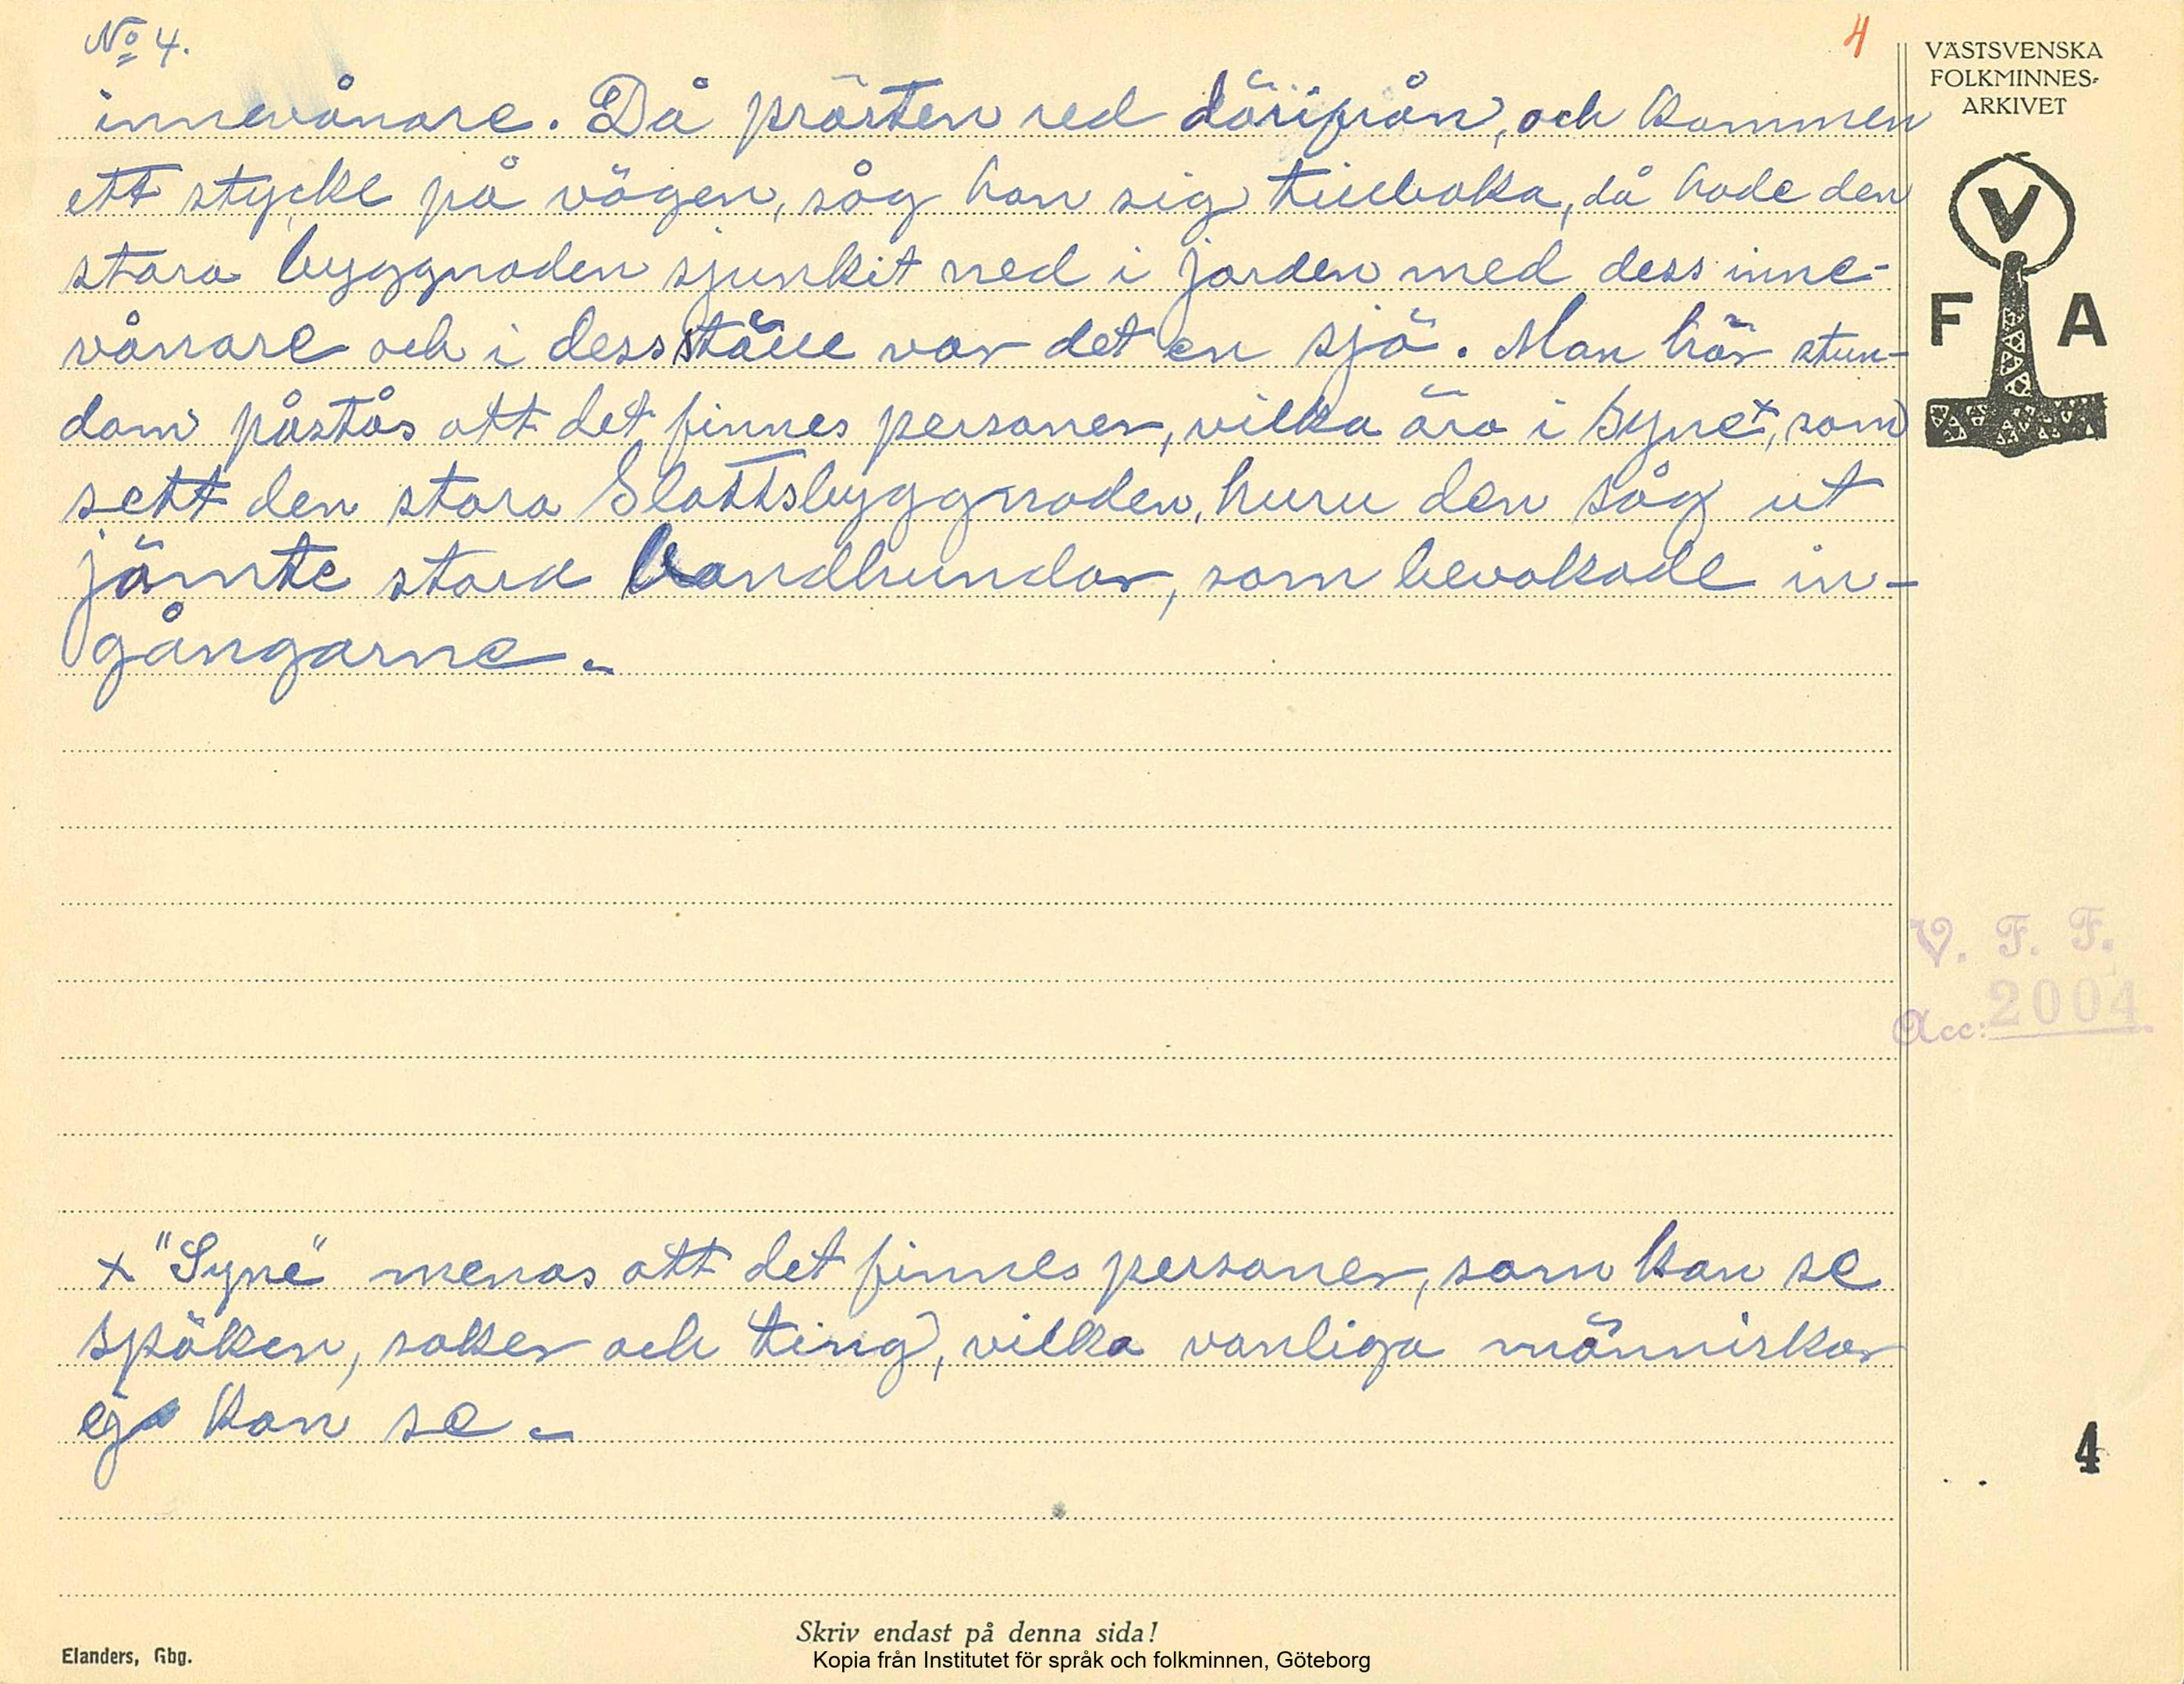 No 4.
4
VÄSTSVENSKA
FOLKMINNES-
ARKIVET
V
F A
innevånare. Då prästen red därifrån, och kommen
ett stycke på vägen, såg han sig tillbaka, då hade den
stora byggnaden sjunkit ned i jorden med dess inne-
vånare och i dess ställe var det en sjö. Man hör stun-
dom påstås att det finnes personer, vilka äro i syne x, som
sett den stora Slottsbyggnaden, huru den såg ut
jämte stora bandhundar, som bevakade in-
gångarne.-
V. F. F.
Acc: 2004.
x "Syne" menas att det finnes personer, som kan se
spöken, saker och ting, vilka vanliga människor
ej kan se.-
4
Skriv endast på denna sida!
Elanders, Gbg.
Kopia från Institutet för språk och folkminnen, Göteborg